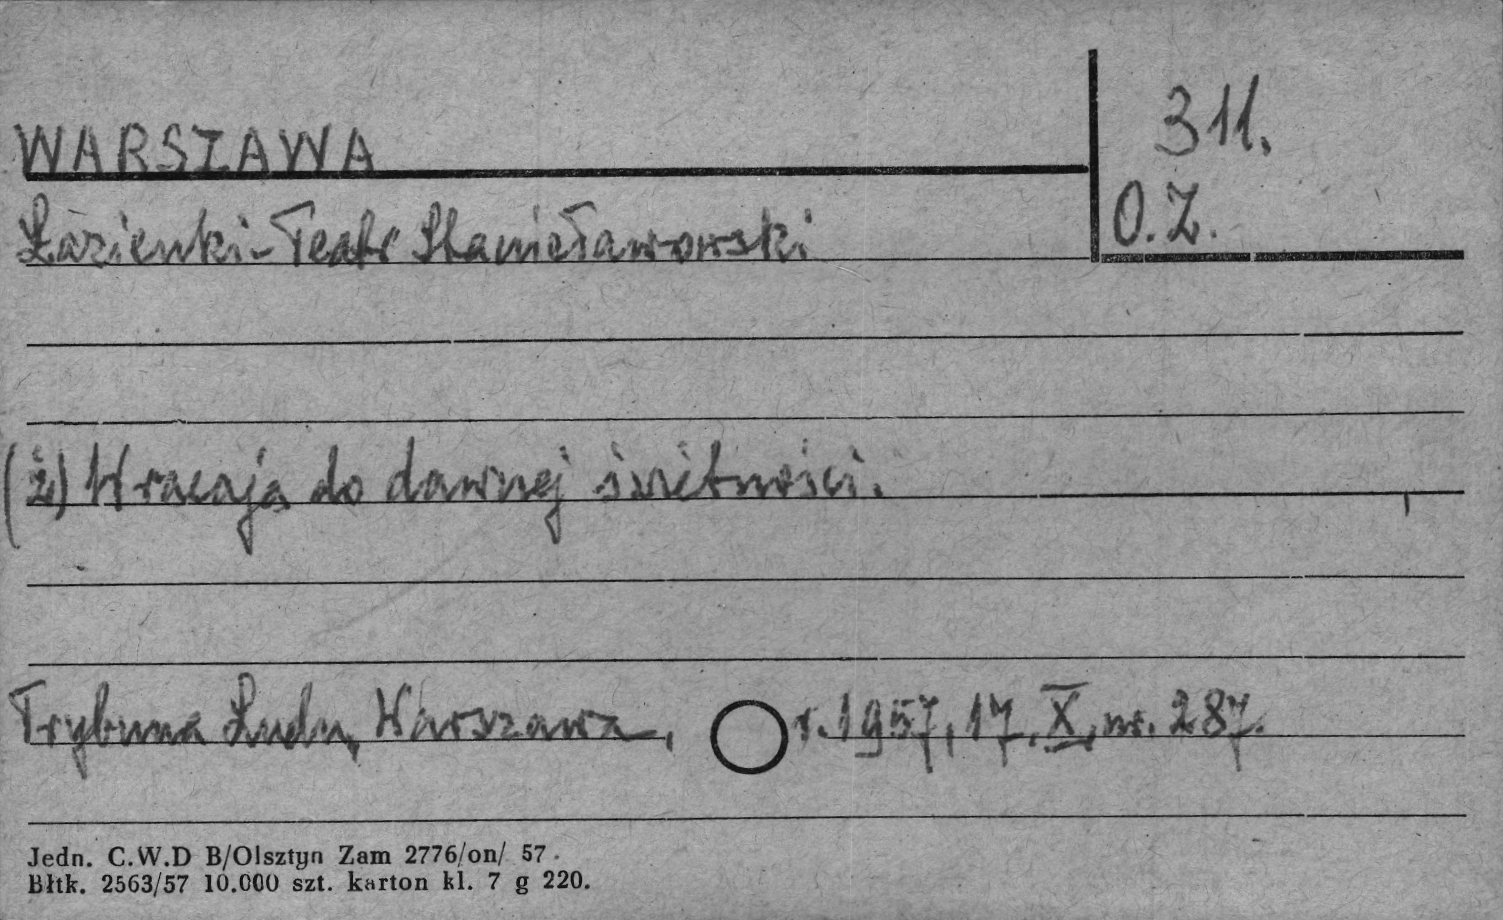 WARSZAWA
311.
O.Z.
Łazienki-Teatr Stanisławowski
(ż) Wracają do dawnej świetności.
Trybuna Ludu, Warszawa, r. 1957, 17. X, nr. 287.
Jedn. C.W.D B/Olsztyn Zam 2776/on/ 57.
Błtk. 2563/57 10.000 szt. karton kl. 7 g 220.